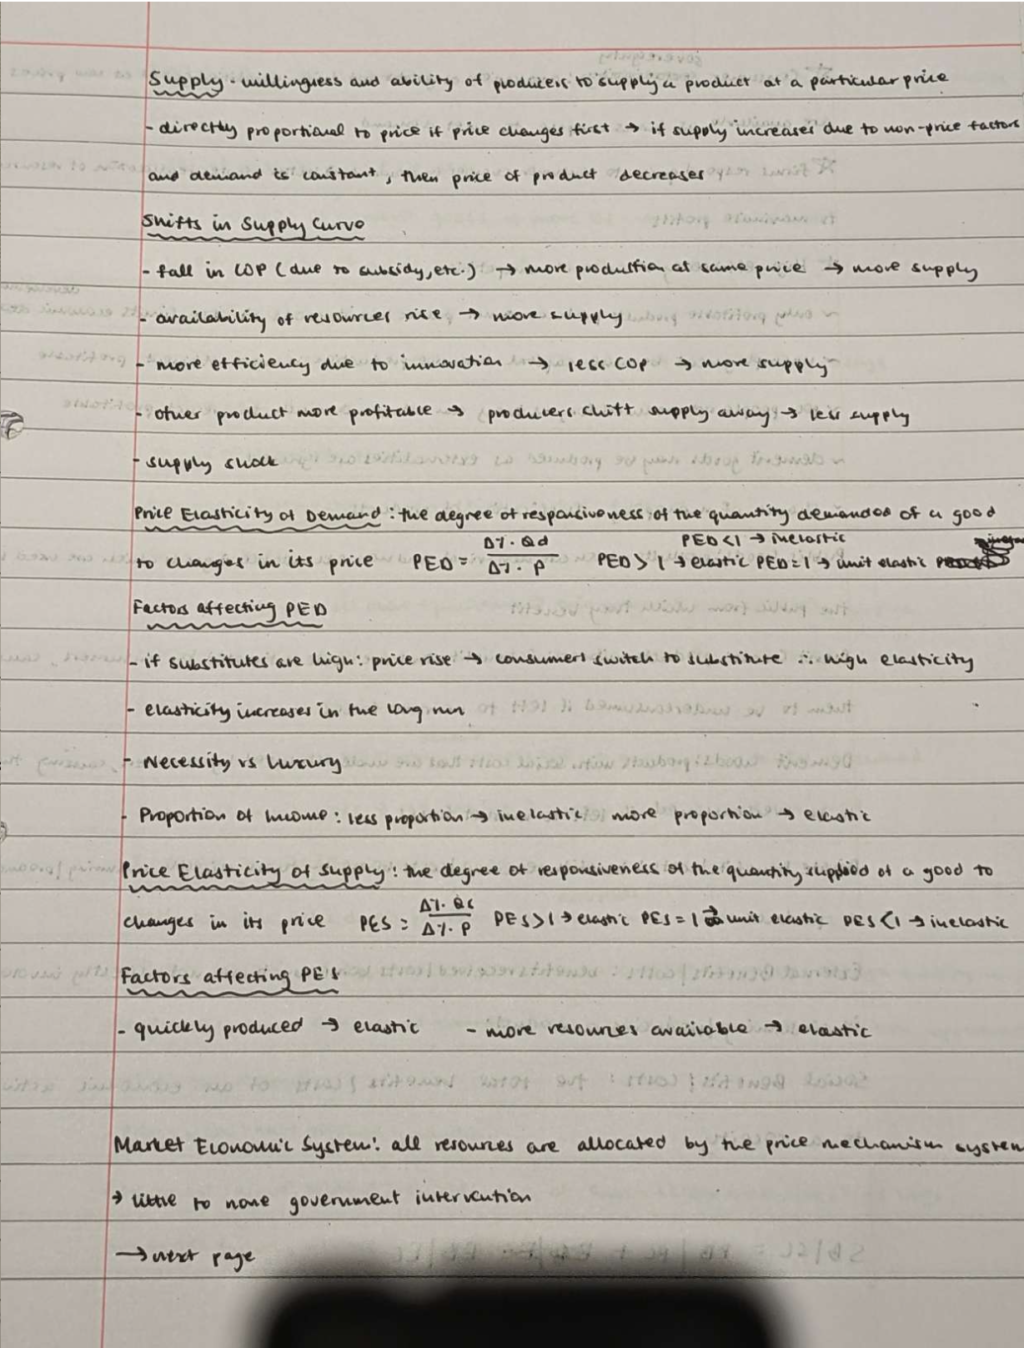 Supply - willingness and ability of producers to supply a product at a particular price
- directly proportional to price if price changes first → if supply increases due to non-price factors
and demand is constant, then price of product decreases
Shifts in Supply Curve
- fall in COP (due to subsidy, etc.) → more production at same price → more supply
- availability of resources rise → more supply
- more efficiency due to innovation → less COP → more supply
- other product more profitable → producers shift supply away → less supply
- supply shock
Price Elasticity of Demand : the degree of responsiveness of the quantity demanded of a good
to changes in its price PED = Δ%. Qd / Δ%. P PED > 1 → elastic PED = 1 → unit elastic PED < 1 → inelastic
Factors affecting PED
- if substitutes are high: price rise → consumers switch to substitute ∴ high elasticity
- elasticity increases in the long run
- Necessity vs Luxury
- Proportion of Income : less proportion → inelastic more proportion → elastic
Price Elasticity of Supply : the degree of responsiveness of the quantity supplied of a good to
changes in its price PES = Δ%. Qs / Δ%. P PES > 1 → elastic PES = 1 → unit elastic PES < 1 → inelastic
Factors affecting PES
- quickly produced → elastic - more resources available → elastic
Market Economic System: all resources are allocated by the price mechanism system
→ little to none government intervention
→ next page